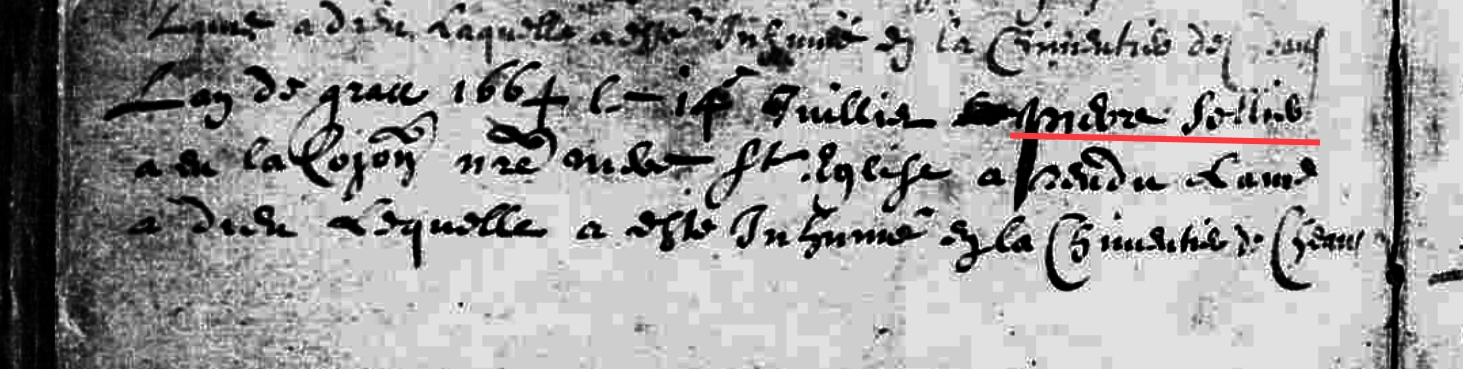 Lame a dieu Laquelle a esté Inhumé en la Cimentier de
Lan de grace 1664 le 14 Juillie Andre Sollier
a en la Cōion nre mere St Eglise a rendu Lame
a dieu Lequelle a esté Inhumé en la Cimentier de Ceans